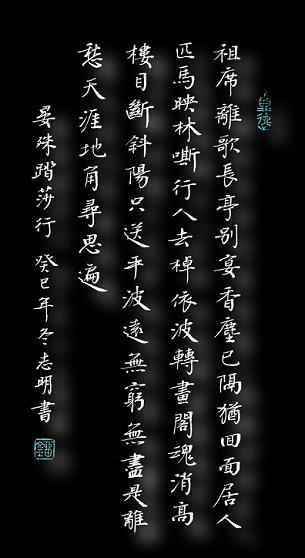 祖席離歌長亭別宴香塵已隔猶回面居人
匹馬映林嘶行人去棹依波轉畫閣魂消高
樓目斷斜陽只送平波遠無窮無盡是離
愁天涯地角尋思遍
晏殊踏莎行 癸巳年冬志明書